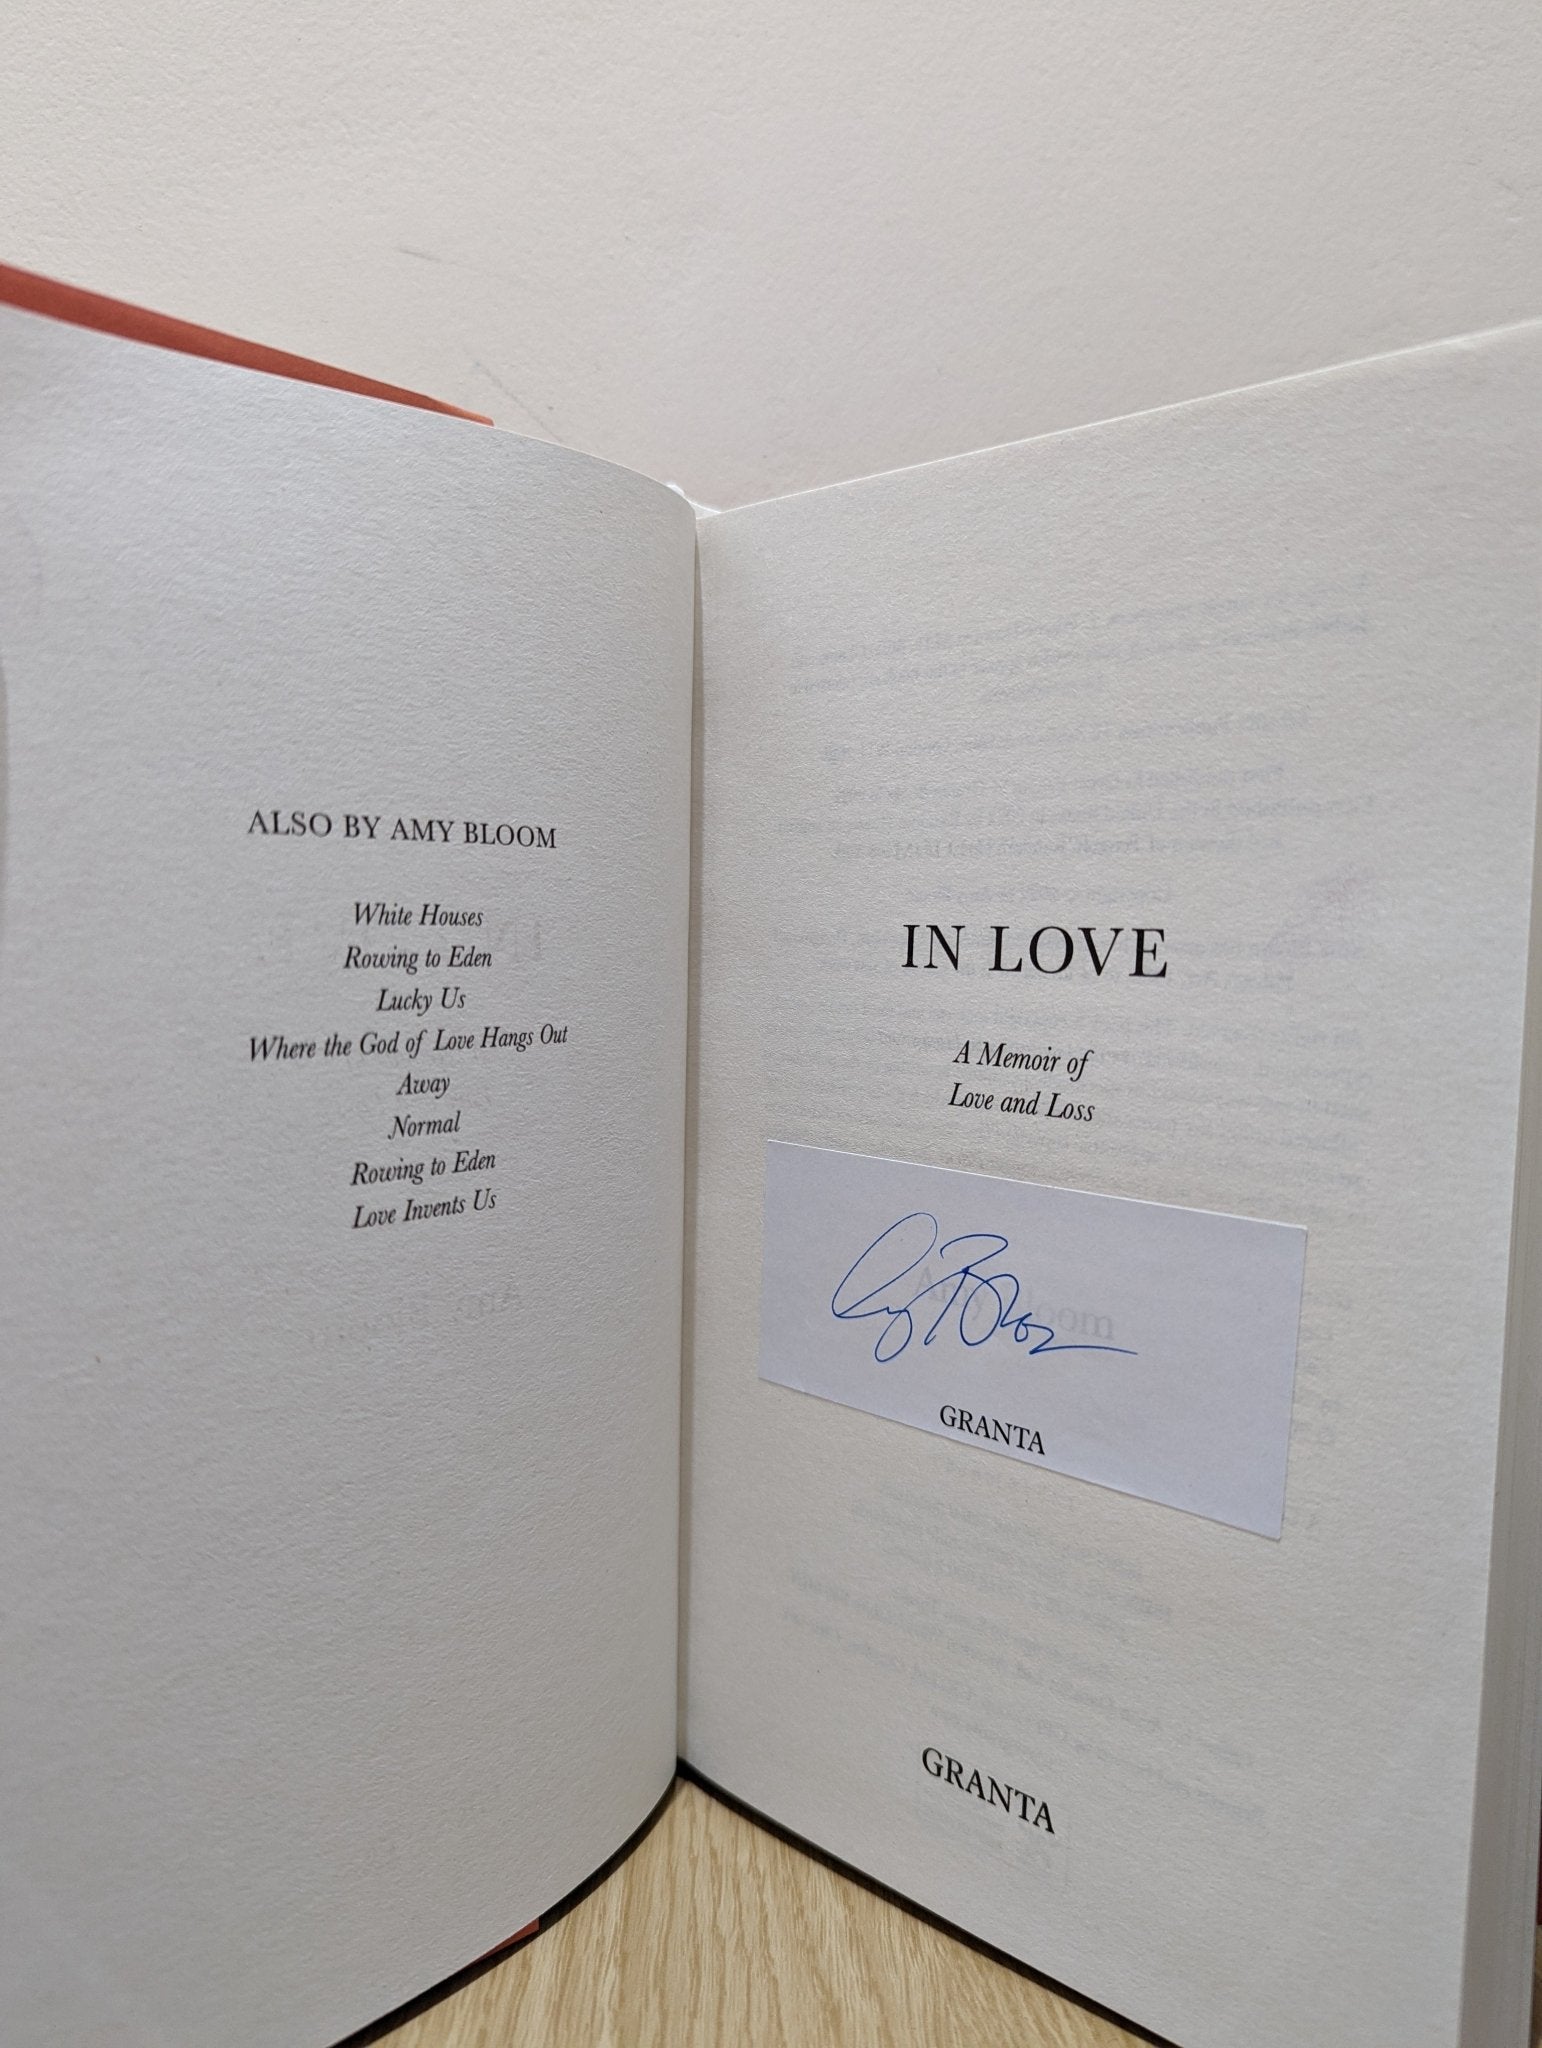 ALSO BY AMY BLOOM
White Houses
Rowing to Eden
Lucky Us
Where the God of Love Hangs Out
Away
Normal
Rowing to Eden
Love Invents Us
IN LOVE
A Memoir of
Love and Loss
Amy Bloom
GRANTA
GRANTA